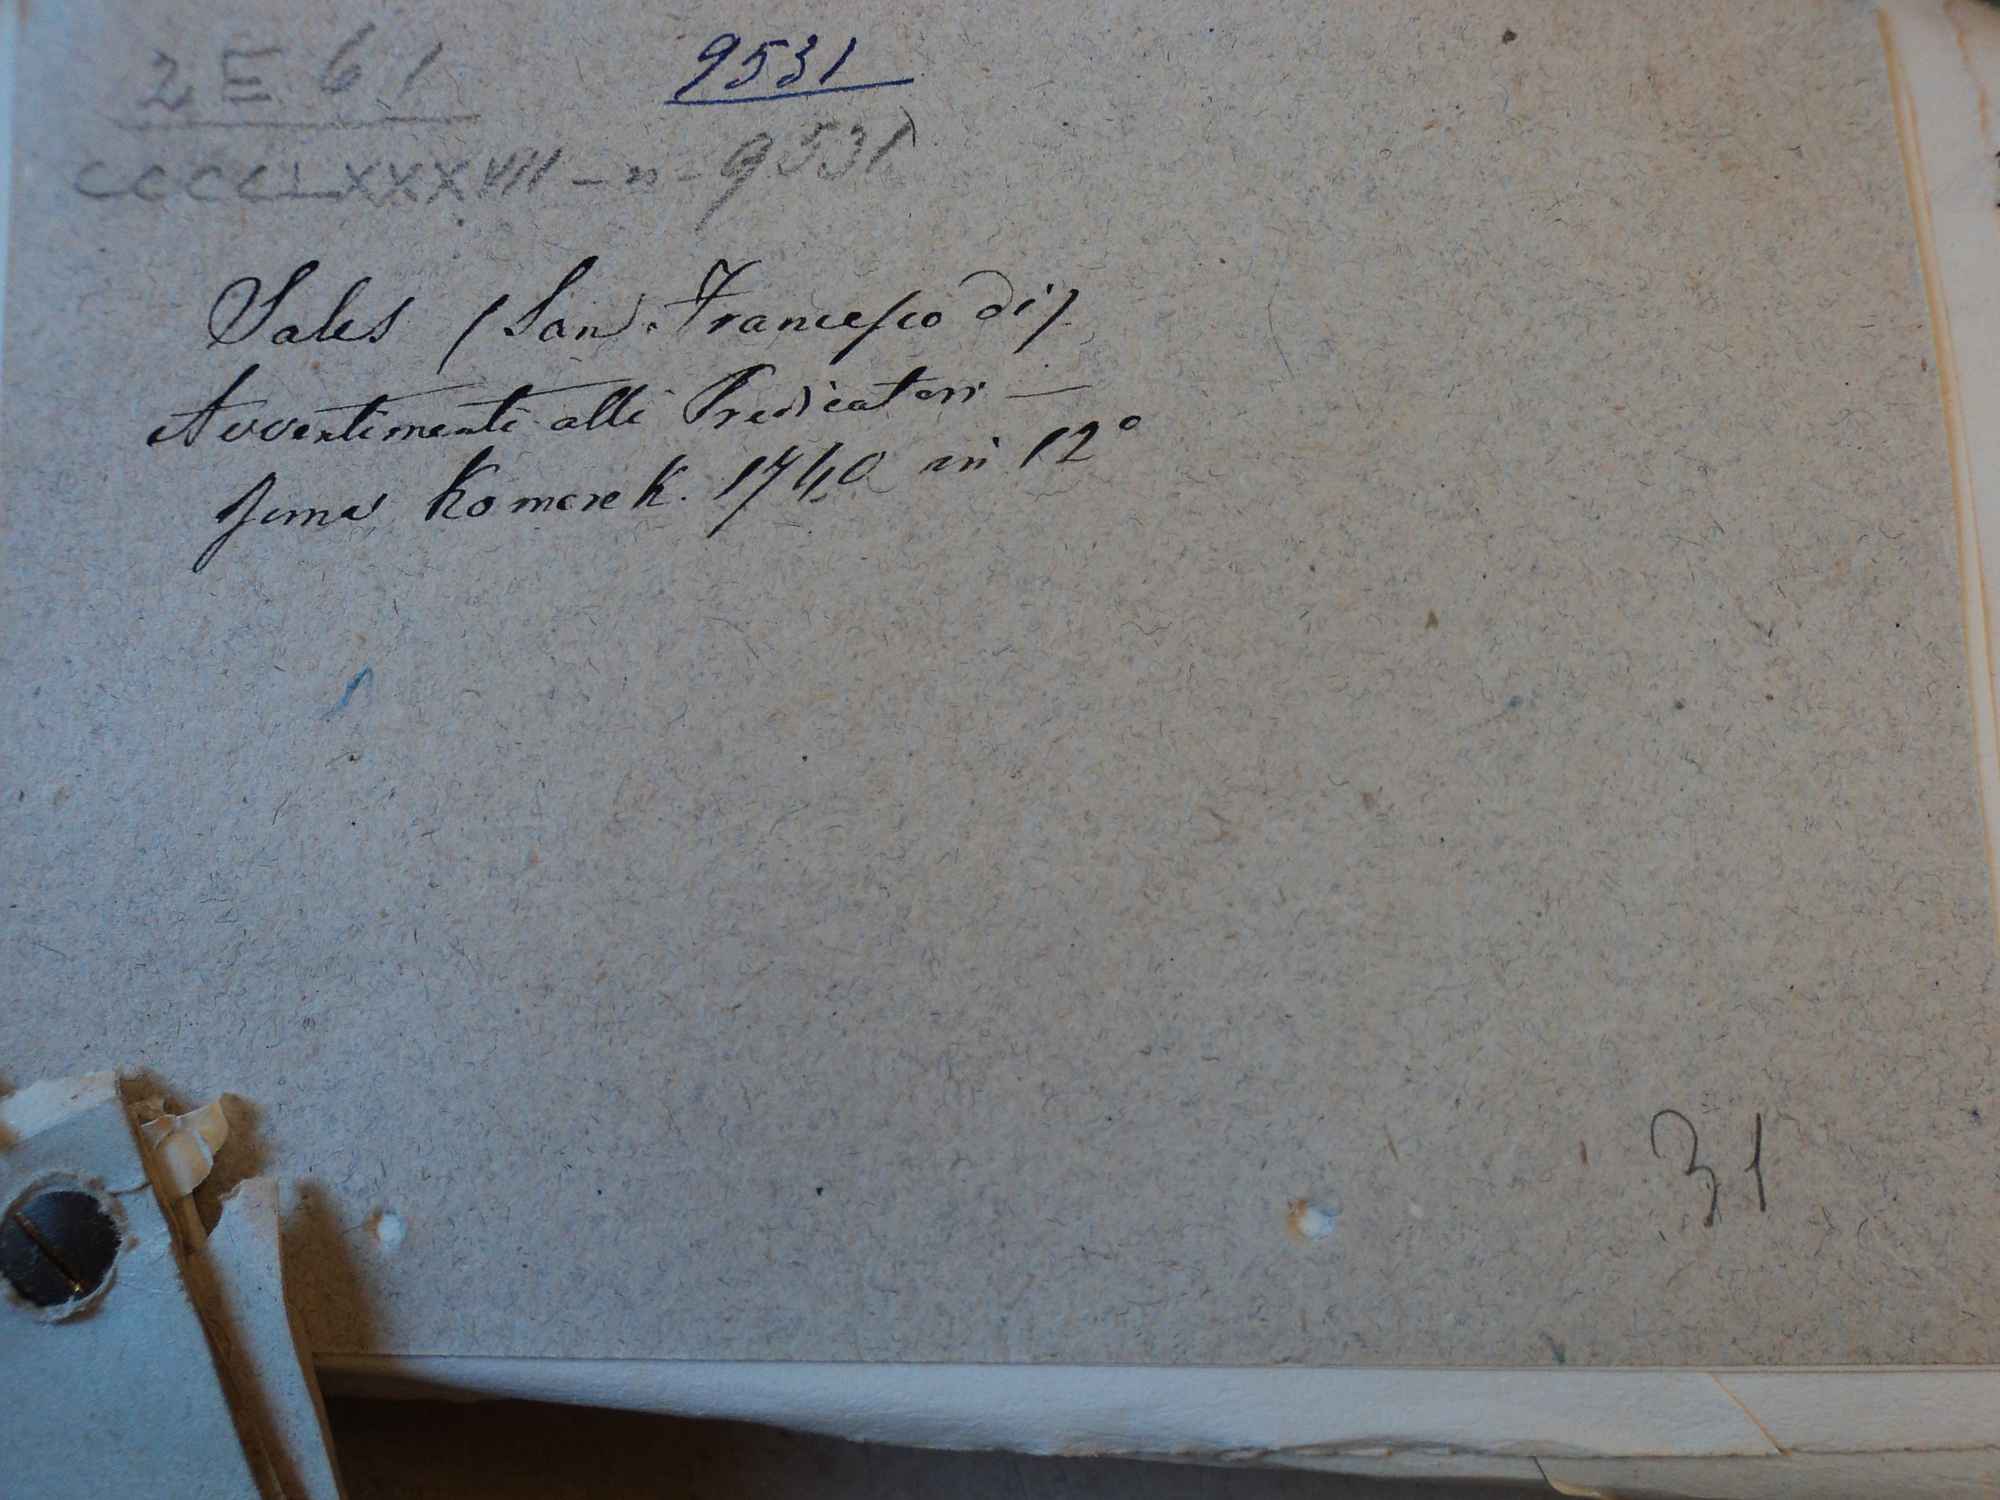 2 E 61
9531
CCCCLXXXVII - n - 9531
Sales (San Francesco di)
Avvertimenti alli Predicatori —
Komarek. 1740 in 12°
31